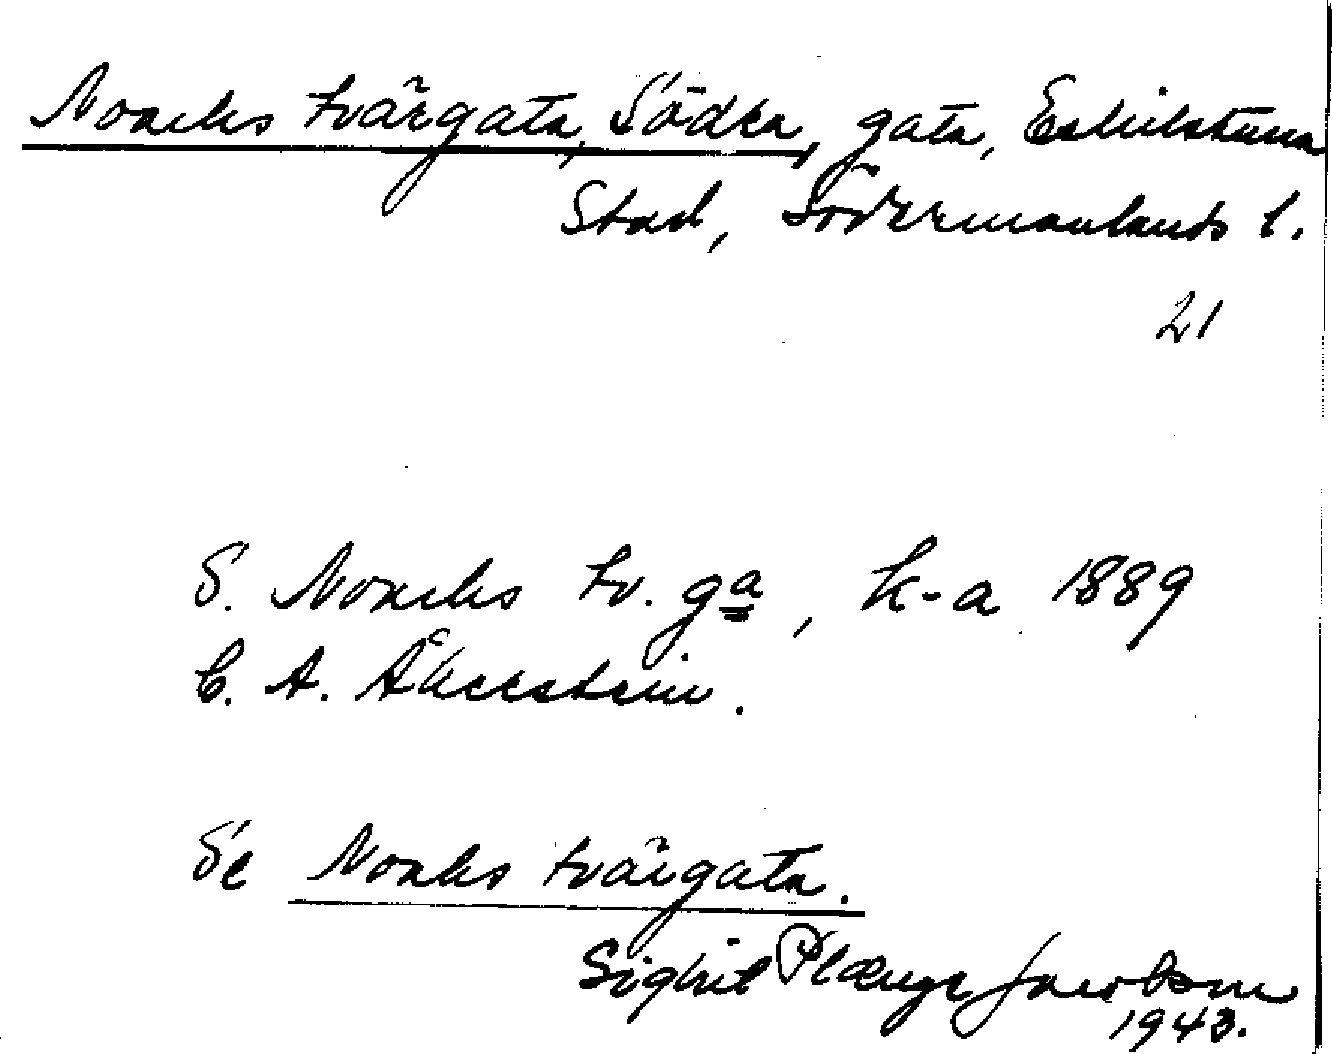 Noachs tvärgata, Södra, gata, Eskilstuna
Stad, Södermanlands l.
21
S. Noachs tv. ga, k-a 1889
C. A. Åkerstein.
Se Noaks tvärgata.
Sigkil Plænge Jacobson
1943.